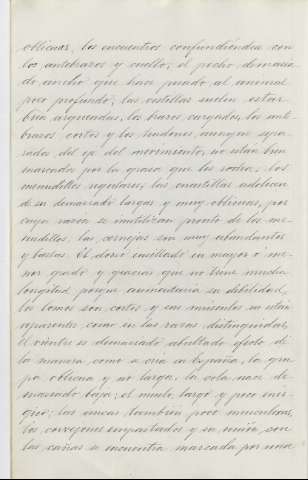 oblicuas, los encuentros confundiéndose con
los antebrazos y cuello; el pecho demasia-
do ancho que hace pesado al animal
poco profundo; las costillas suelen estar
bien arqueadas, los brazos cargados, los ante-
brazos cortos y los tendones, aunque sepa-
rados del eje del movimiento, no están bien
marcados por la grasa que los rodea; los
menudillos regulares, las cuartillas adolecen
de ser demasiado largas y muy oblicuas, por
cuya razón se inutilizan pronto de los me-
nudillos, las cernejas son muy abundantes
y bastas. El dorso ensillado en mayor ó me-
nor grado y gracias que no tiene mucha
longitud porque aumentaría su debilidad,
los lomos son cortos y sus músculos no están
aparentes, como en las razas distinguidas,
el vientre es demasiado abultado efecto de
la manera como se cría en España, la gru-
pa oblicua y no larga, la cola nace de-
masiado baja; el muslo largo y poco enér-
gico; las ancas también poco musculosas,
los corvejones empastados y su unión con
las cañas se encuentra marcada por una